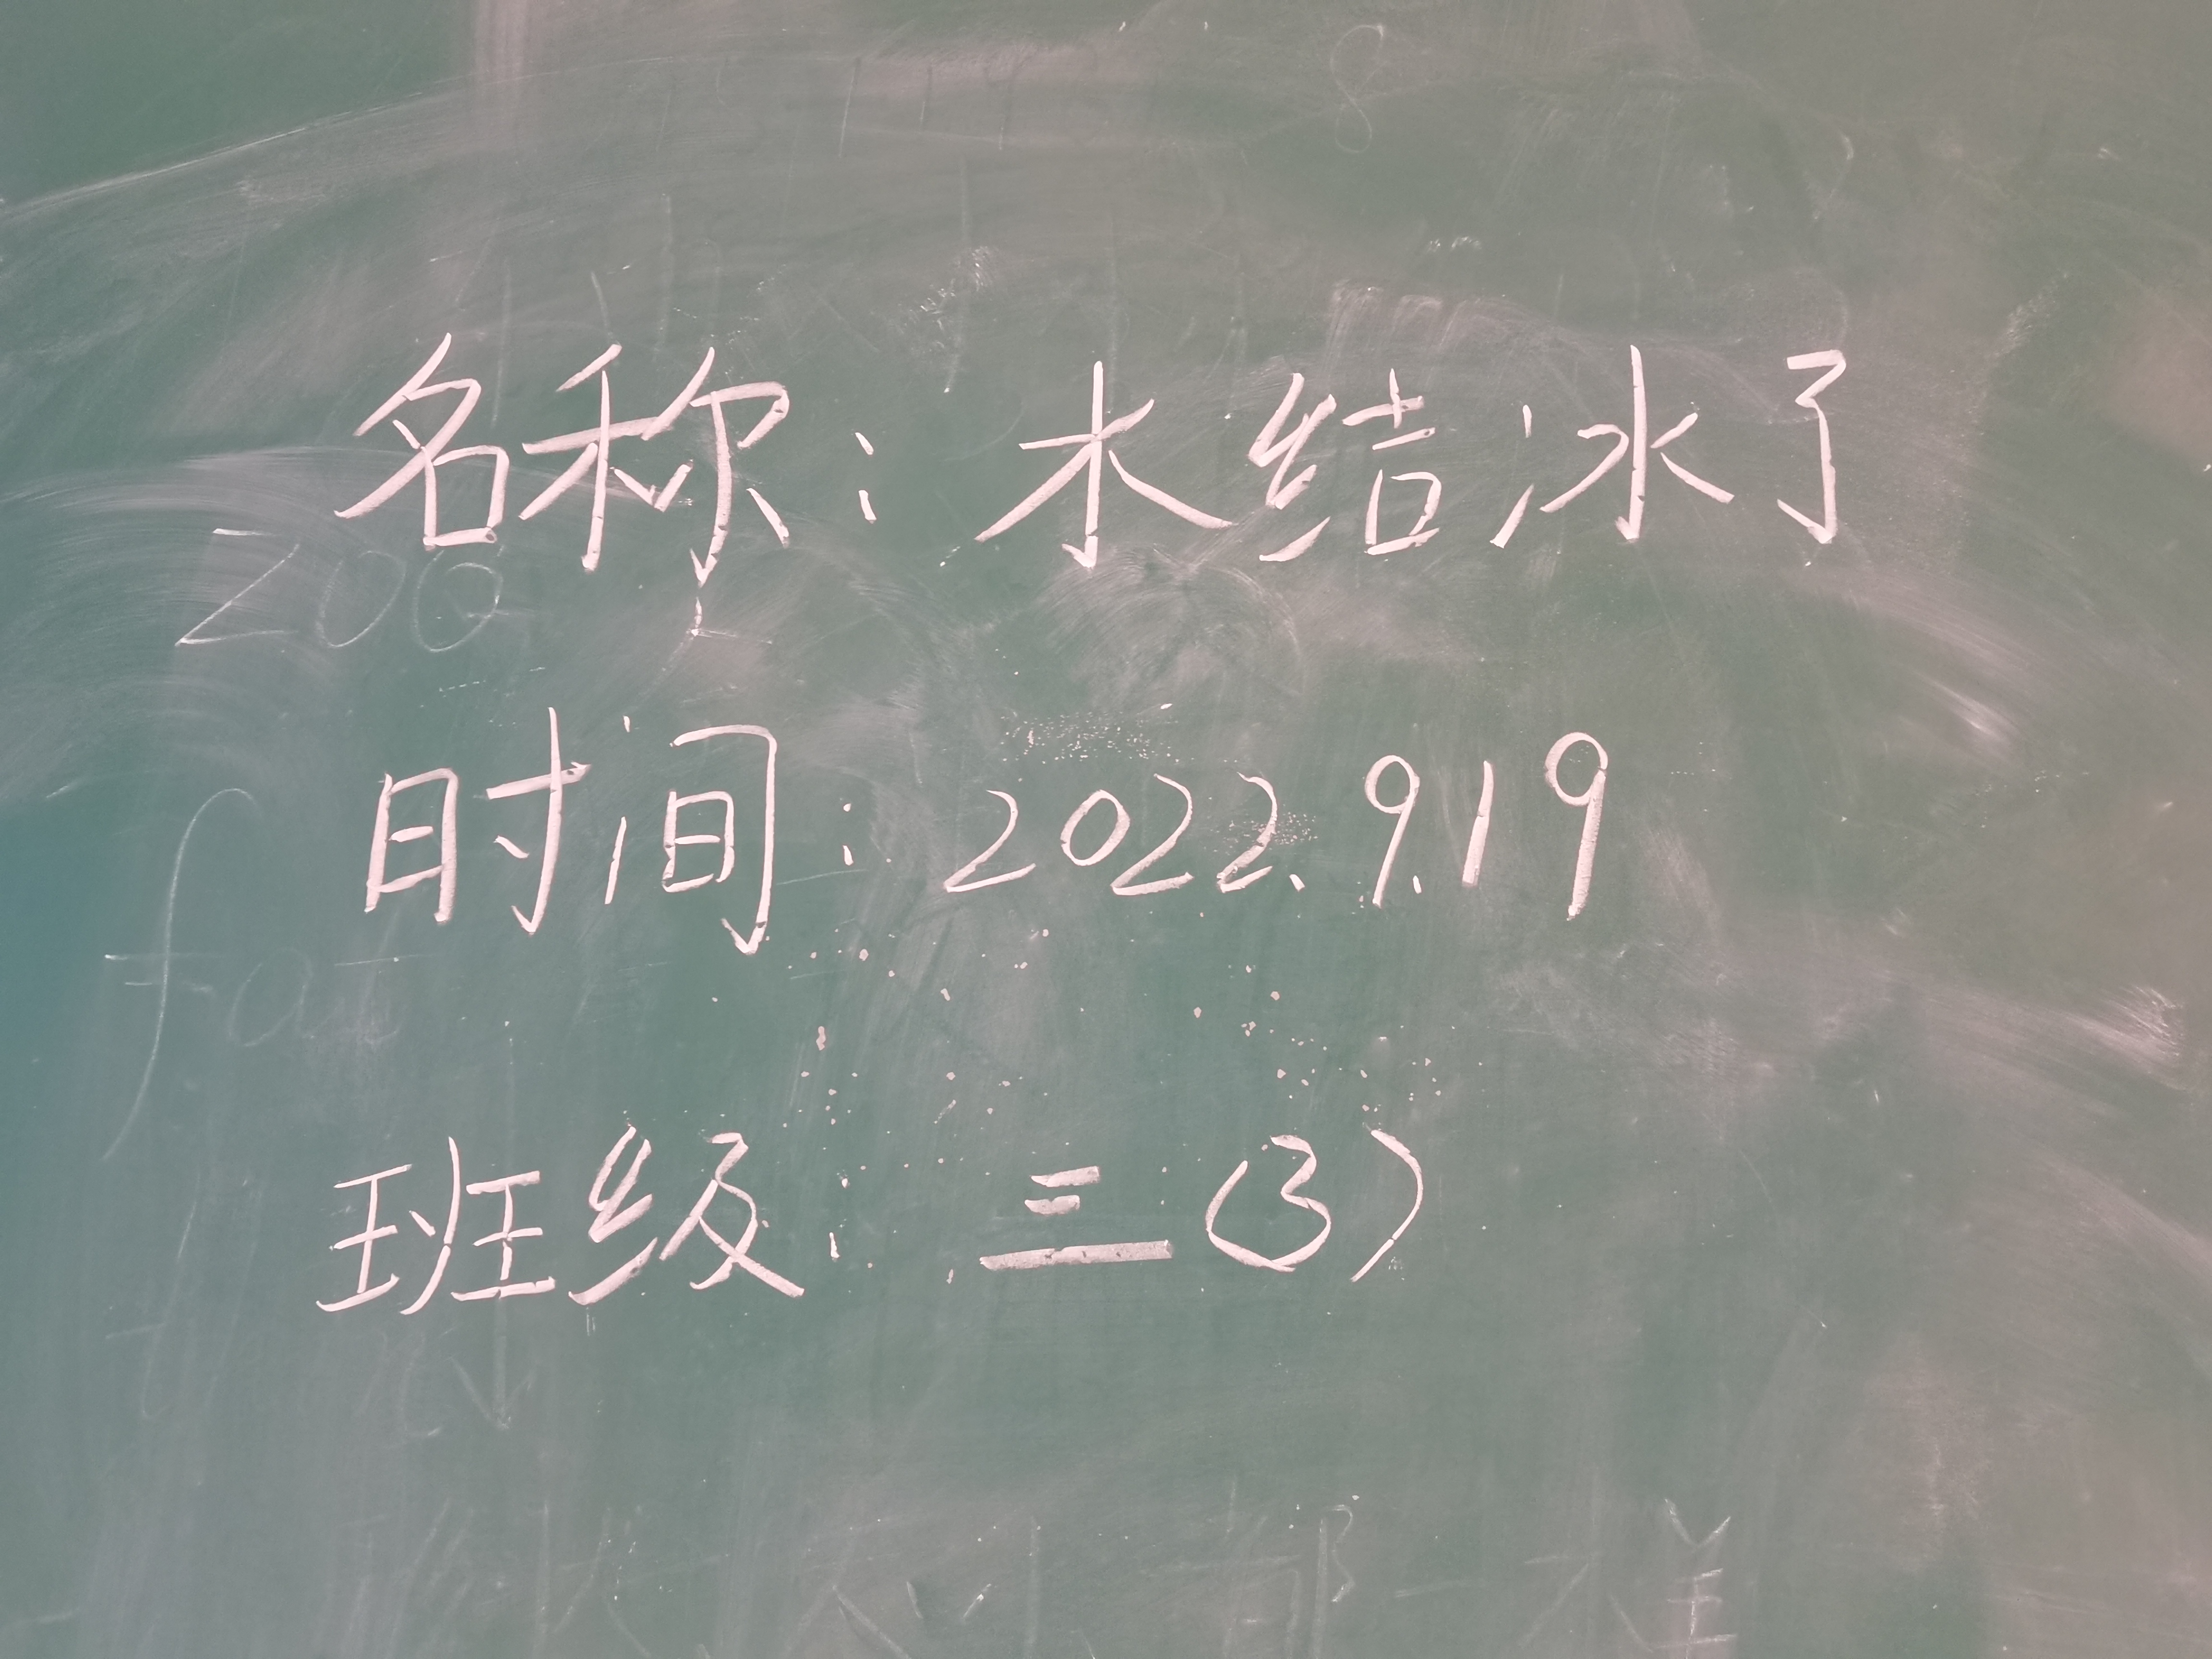 名称：木结冰了
时间：2022.9.19
班级：三（3）